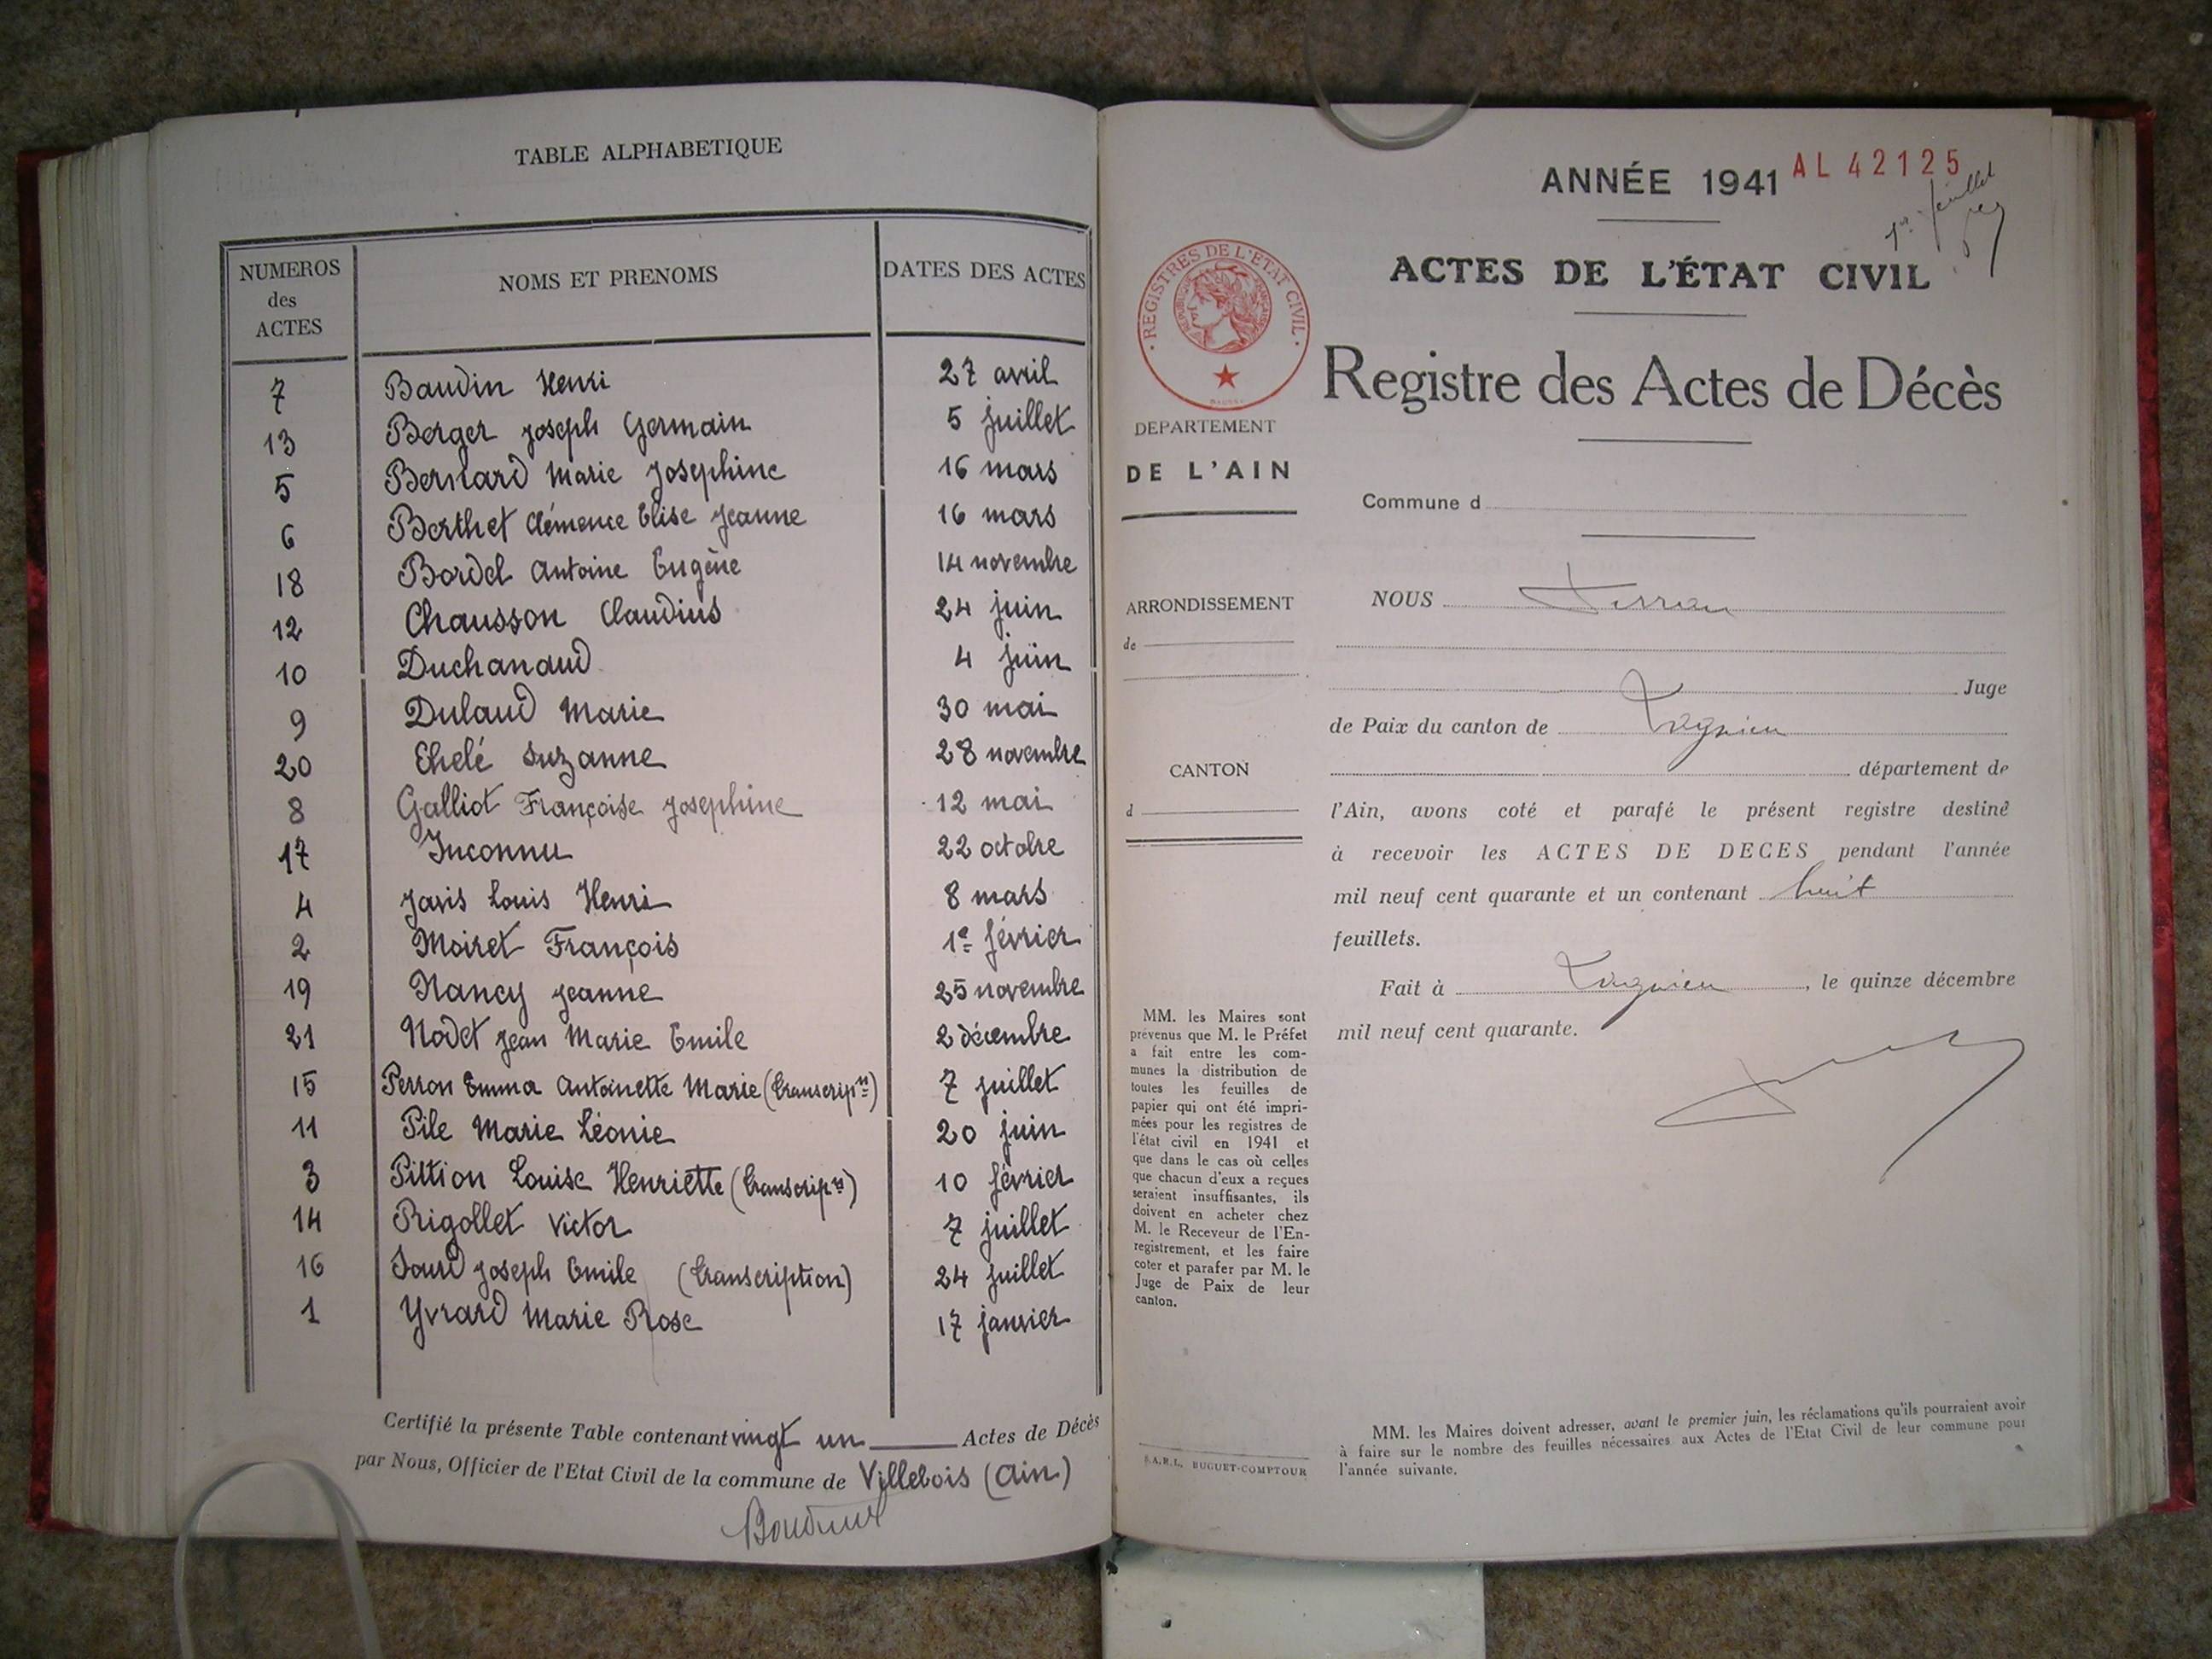 TABLE ALPHABETIQUE
NUMEROS des ACTES NOMS ET PRENOMS DATES DES ACTES
7 Baudin Henri 27 avril
13 Berger Joseph Germain 5 juillet
5 Bernard Marie Josephine 16 mars
6 Berthet Clémence Elise Jeanne 16 mars
18 Bordel Antoine Eugène 14 novembre
12 Chausson Claudius 24 juin
10 Duchanaud 4 juin
9 Dulaud Marie 30 mai
20 Ehelé Suzanne 28 novembre
8 Galliot Françoise Josephine 12 mai
17 Inconnu 22 octobre
4 Javis Louis Henri 8 mars
2 Moiret François 1e février
19 Nancy Jeanne 25 novembre
21 Nodet Jean Marie Emile 2 décembre
15 Perron Emma Antoinette Marie (transcripn) 7 juillet
11 Pile Marie Léonie 20 juin
3 Pittion Louise Henriette (transcripn) 10 février
14 Rigollet Victor 7 juillet
16 Joseph Emile (transcription) 24 juillet
1 Yvrard Marie Rose 17 janvier
Certifié la présente Table contenant vingt un Actes de Décès
par Nous, Officier de l'Etat Civil de la commune de Villebois (Ain)
ANNÉE 1941 AL 42125
1er feuillet
ACTES DE L'ÉTAT CIVIL
REGISTRES DE L'ETAT CIVIL
REPUBLIQUE FRANÇAISE
Registre des Actes de Décès
DEPARTEMENT
DE L'AIN
Commune d
ARRONDISSEMENT
de
CANTON
d
NOUS
Juge
de Paix du canton de Lagnieu
département de
l'Ain, avons coté et parafé le présent registre destiné
à recevoir les ACTES DE DECES pendant l'année
mil neuf cent quarante et un contenant huit
feuillets.
Fait à Lagnieu, le quinze décembre
mil neuf cent quarante.
MM. les Maires sont
prévenus que M. le Préfet
a fait entre les com-
munes la distribution de
toutes les feuilles de
papier qui ont été impri-
mées pour les registres de
l'état civil en 1941 et
que dans le cas où celles
que chacun d'eux a reçues
seraient insuffisantes, ils
doivent en acheter chez
M. le Receveur de l'En-
registrement, et les faire
coter et parafer par M. le
Juge de Paix de leur
canton.
S.A.R.L. BUGUET-COMPTOUR
MM. les Maires doivent adresser, avant le premier juin, les réclamations qu'ils pourraient avoir
à faire sur le nombre des feuilles nécessaires aux Actes de l'Etat Civil de leur commune pour
l'année suivante.